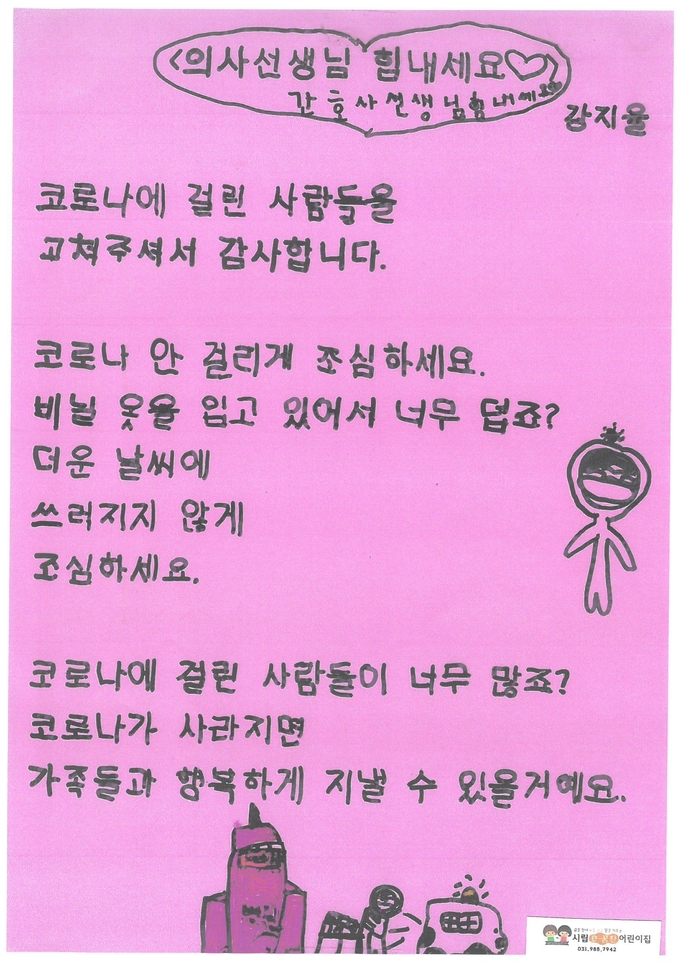 <의사선생님 힘내세요♡>
간호사선생님힘내세요
강지율
코로나에 걸린 사람들을
고쳐주셔서 감사합니다.
코로나 안 걸리게 조심하세요.
비닐 옷을 입고 있어서 너무 덥죠?
더운 날씨에
쓰러지지 않게
조심하세요.
코로나에 걸린 사람들이 너무 많죠?
코로나가 사라지면
가족들과 행복하게 지낼 수 있을거예요.
시립 어린이집
031.988.7942